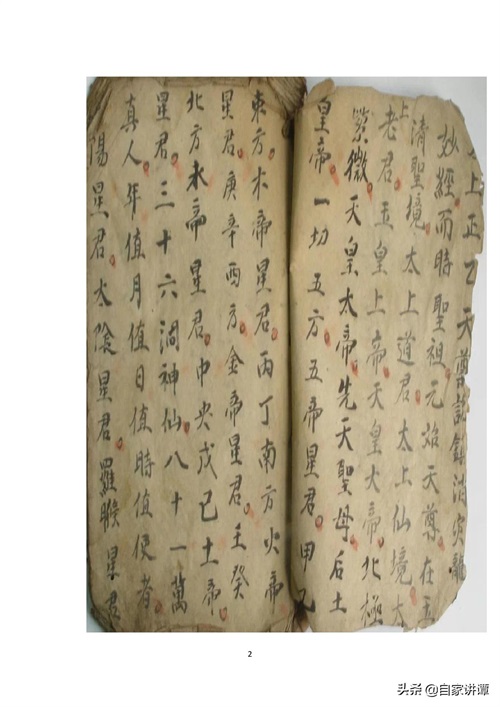 上正乙天尊説鎮消灾龍
妙經而時聖祖元始天尊在玉
清聖境太上道君太上仙境太
上老君玉皇上帝天皇大帝北極
紫微天皇太帝先天聖母后土
皇帝一切五方五帝星君甲乙
東方木帝星君丙丁南方火帝
星君庚辛西方金帝星君壬癸
北方水帝星君中央戊己土帝
星君三十六洞神仙八十一萬
真人年值月值日值時值使者
陽星君太陰星君羅睺星君
2
头条 @自家讲谭